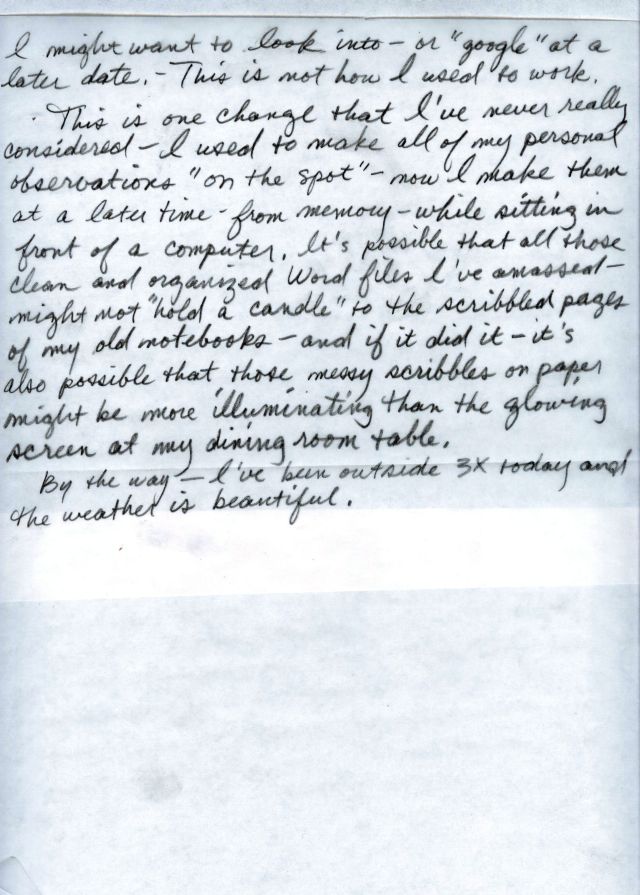 I might want to look into - or "google" at a
later date. - This is not how I used to work.
This is one change that I've never really
considered - I used to make all of my personal
observations "on the spot" - now I make them
at a later time - from memory - while sitting in
front of a computer. It's possible that all those
clean and organized Word files I've amassed -
might not "hold a candle" to the scribbled pages
of my old notebooks - and if it did it - it's
also possible that those messy scribbles on paper
might be more illuminating than the glowing
screen at my dining room table.
By the way - I've been outside 3X today and
the weather is beautiful.